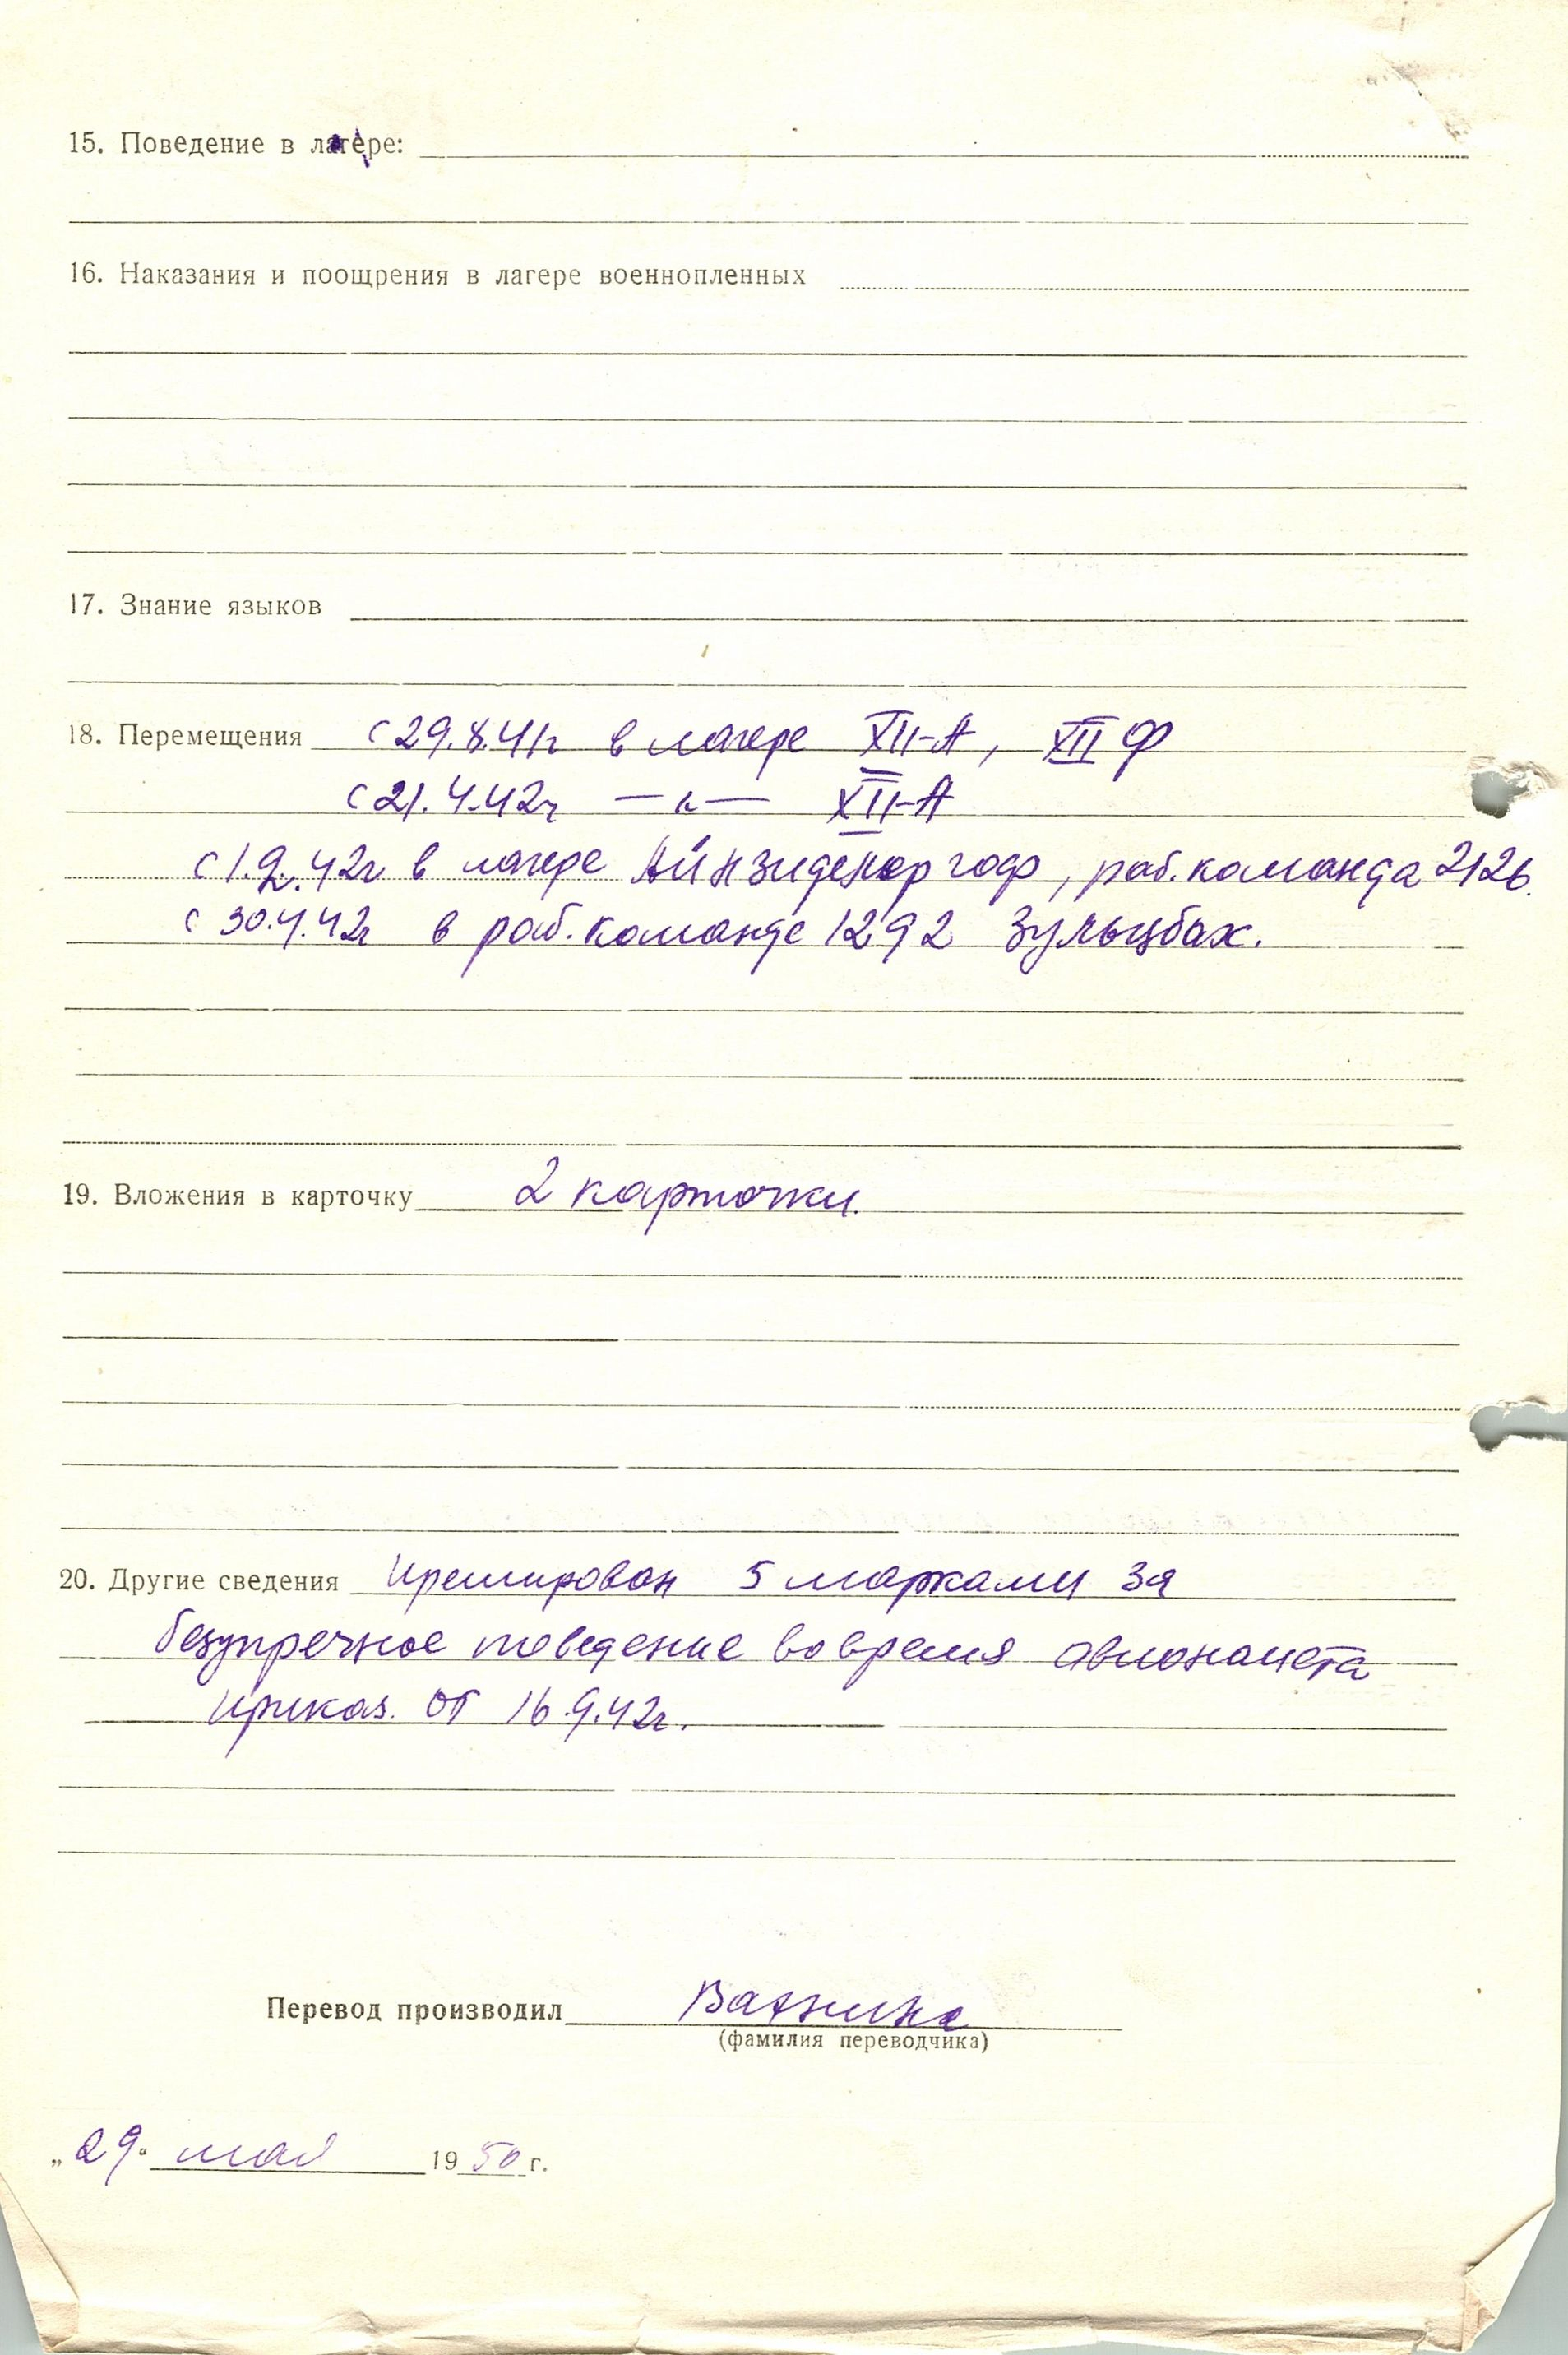 15. Поведение в лагере:
16. Наказания и поощрения в лагере военнопленных
17. Знание языков
18. Перемещения с 29.8.41г в лагере XII-А, XII Ф
с 21.4.42г — " — XII-А
с 1.9.42г в лагере раб. команда 2126.
с 30.4.42г в раб. команде 1292 Зульцбах.
19. Вложения в карточку 2 карточки.
20. Другие сведения Премирован 5 марками за
безупречное поведение во время авионалета
приказ. от 16.9.42г.
Перевод производил
(фамилия переводчика)
„29" мая 1950 г.